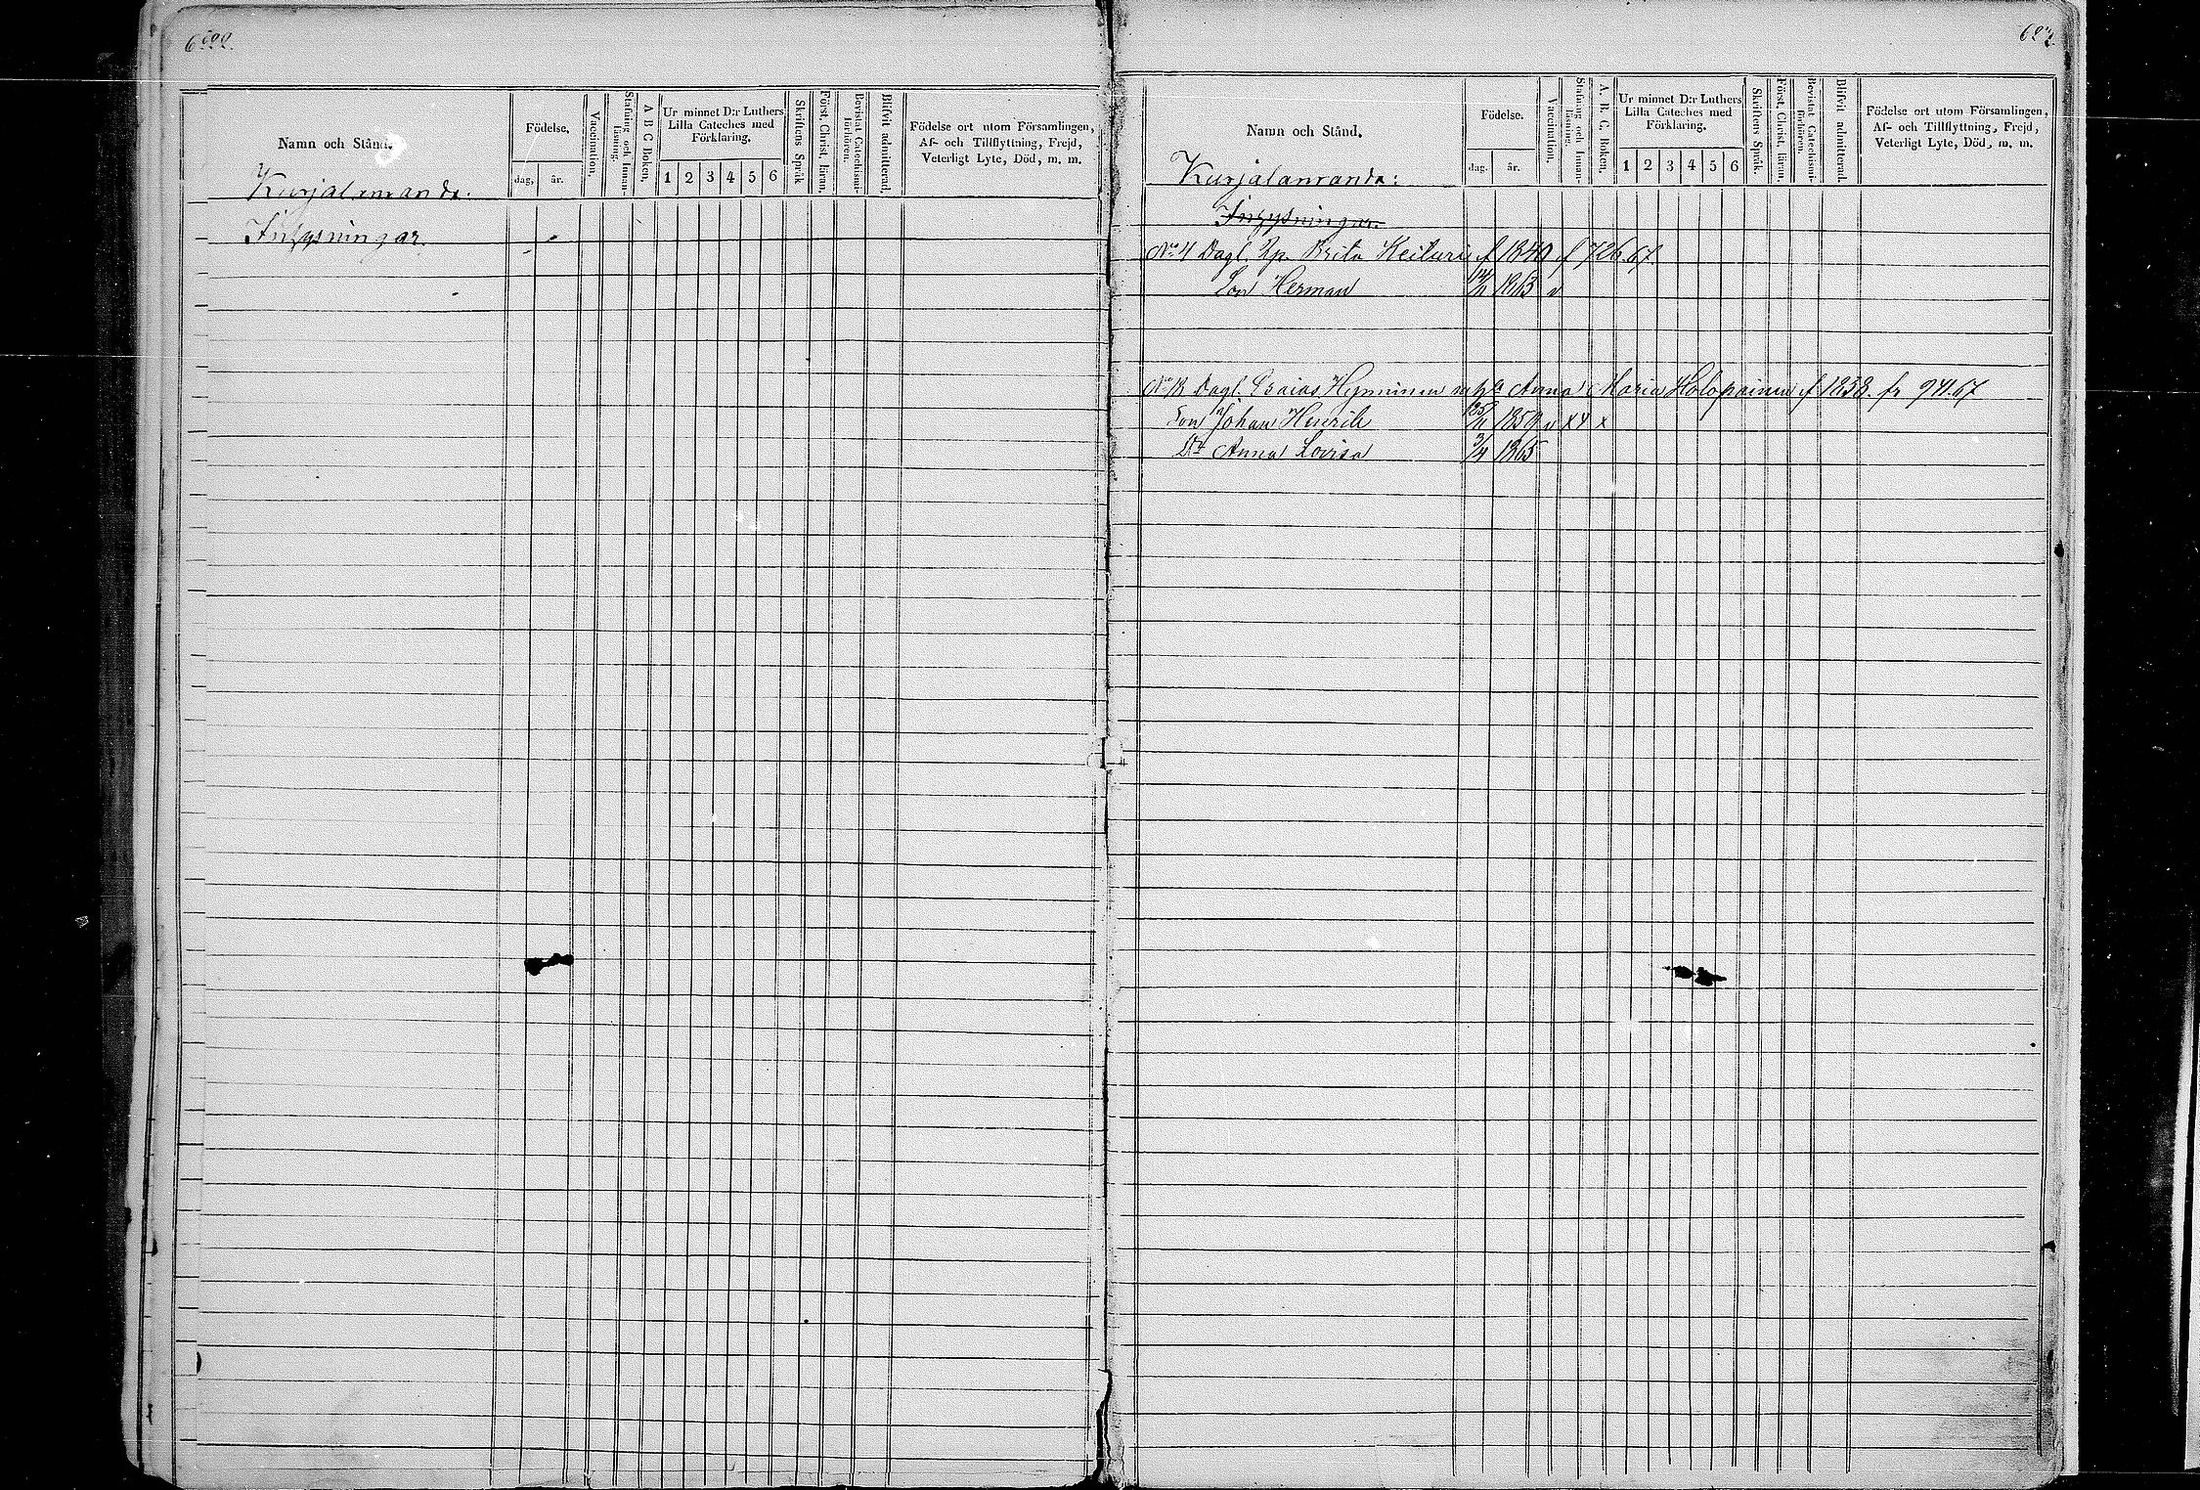 622.
Namn och Stånd.
Födelse,
dag, år.
Vaccination,
Stafning och Innan-läsning.
A B C Boken,
Ur minnet D:r Luthers
Lilla Cateches med
Förklaring,
1 2 3 4 5 6
Skriftens Språk
Först. Christ. läran,
Bevistat Catechismi-förhören.
Blifvit admitterad,
Födelse ort utom Församlingen,
Af- och Tillflyttning, Frejd,
Veterligt Lyte, Död, m. m.
Kurjalanranda:
Inhysningar.
Namn och Stånd.
Födelse.
dag. år.
Vaccination,
Stafning och Innan-läsning.
A. B. C. Boken,
Ur minnet D:r Luthers
Lilla Cateches med
Förklaring.
1 2 3 4 5 6
Skriftens Språk.
Först. Christ. läran
Bevistat Catechismi-förhören.
Blifvit admitterad.
Födelse ort utom Församlingen,
Af- och Tillflyttning, Frejd,
Veterligt Lyte, Död, m. m.
Kurjalanranda:
Inhysningar.
No 4 Dagl. Brita Keituri f 1840 f 726.67.
Son Herman 1865 v
Dagl. Esaias Hynninen Anna Maria Holopainen f 1838. fr 941.67
Son Johan Henrik 1859 v x x x
Dr Anna Lovisa 3/4 1865